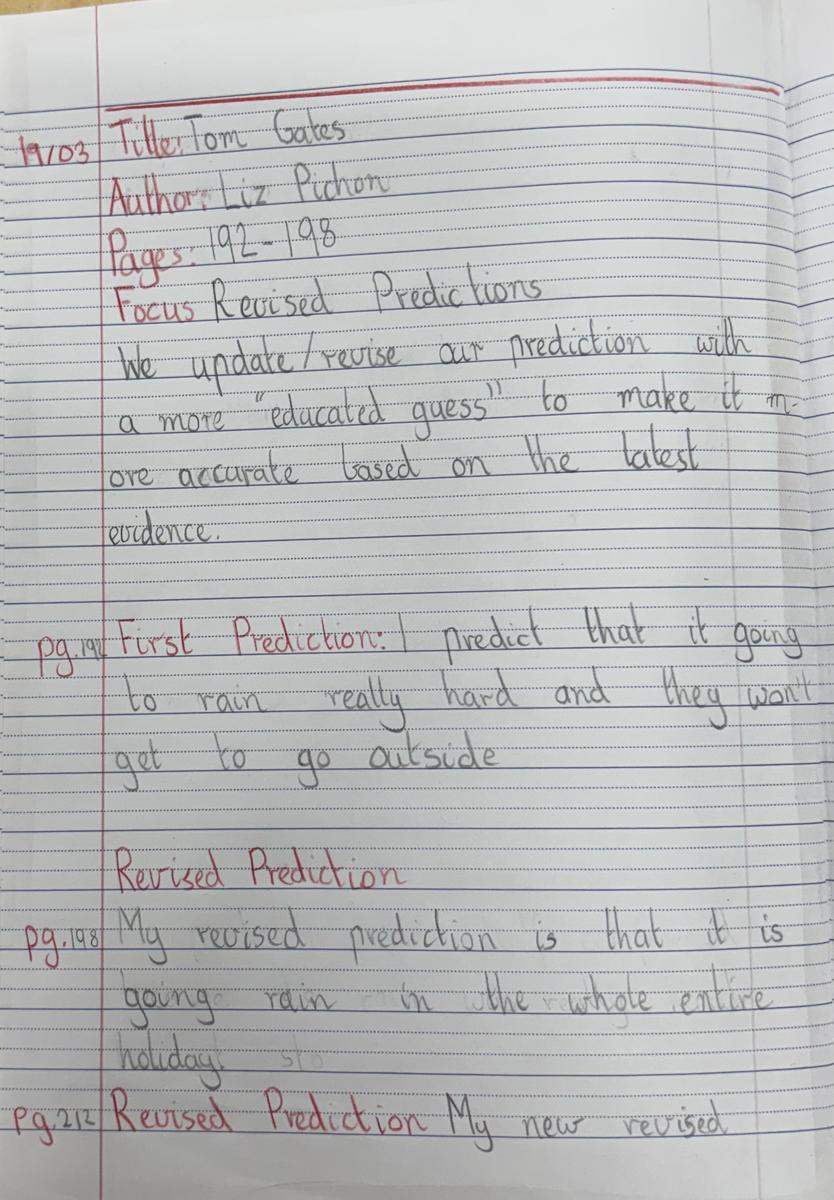 19/03 Title: Tom Gates
Author: Liz Pichon
Pages: 192-198
Focus Revised Predictions
We update/revise our prediction with
a more "educated guess" to make it m-
ore accurate based on the latest
evidence.
pg. First Prediction: I predict that it going
to rain really hard and they won't
get to go outside
Revised Prediction
pg.198 My revised prediction is that it is
going rain in the whole entire
holiday.
pg.212 Revised Prediction My new revised